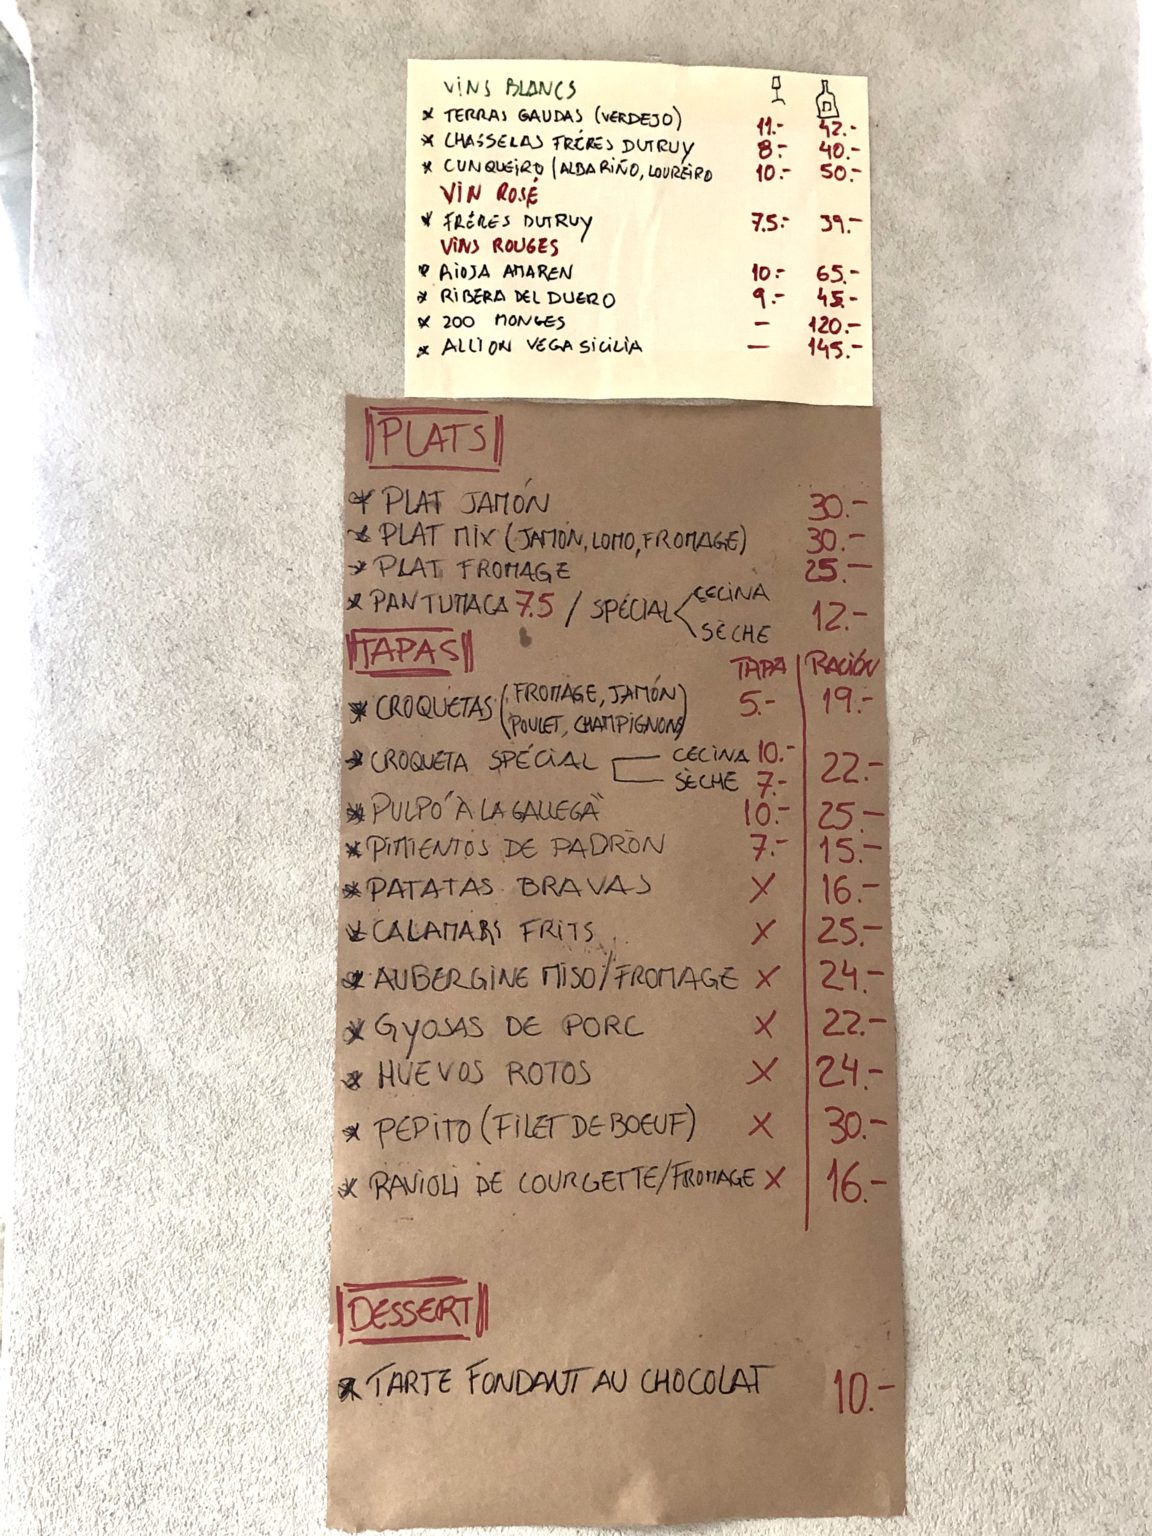 VINS BLANCS
* TERRAS GAUDAS (VERDEJO) 11.- 42.-
* CHASSELAS FRÉRES DUTRUY 8.- 40.-
* CUNQUEIRO (ALBARIÑO, LOUREIRO 10.- 50.-
VIN ROSÉ
* FRÉRES DUTRUY 7.5.- 39.-
VINS ROUGES
* RIOJA AMAREN 10.- 65.-
* RIBERA DEL DUERO 9.- 45.-
* 200 MONGES - 120.-
* ALLION VEGA SICILIA - 145.-
PLATS
* PLAT JAMÓN 30.-
* PLAT MIX (JAMÓN, LOMO, FROMAGE) 30.-
* PLAT FROMAGE 25.-
* PANTUMACA 7.5 / SPÉCIAL CECINA
SÈCHE 12.-
TAPAS
TAPA RACIÓN
* CROQUETAS (FROMAGE, JAMÓN) 5.- 19.-
(POULET, CHAMPIGNONS)
* CROQUETA SPÉCIAL CECINA 10.- 22.-
SÈCHE 7.-
* PULPO "A LA GALLEGA" 10.- 25.-
* PIMIENTOS DE PADRÒN 7.- 15.-
* PATATAS BRAVAS X 16.-
* CALAMARS FRITS X 25.-
* AUBERGINE MISO/FROMAGE X 24.-
* GYOSAS DE PORC X 22.-
* HUEVOS ROTOS X 24.-
* PEPITO (FILET DE BOEUF) X 30.-
* RAVIOLI DE COURGETTE/FROMAGE X 16.-
DESSERT
* TARTE FONDANT AU CHOCOLAT 10.-